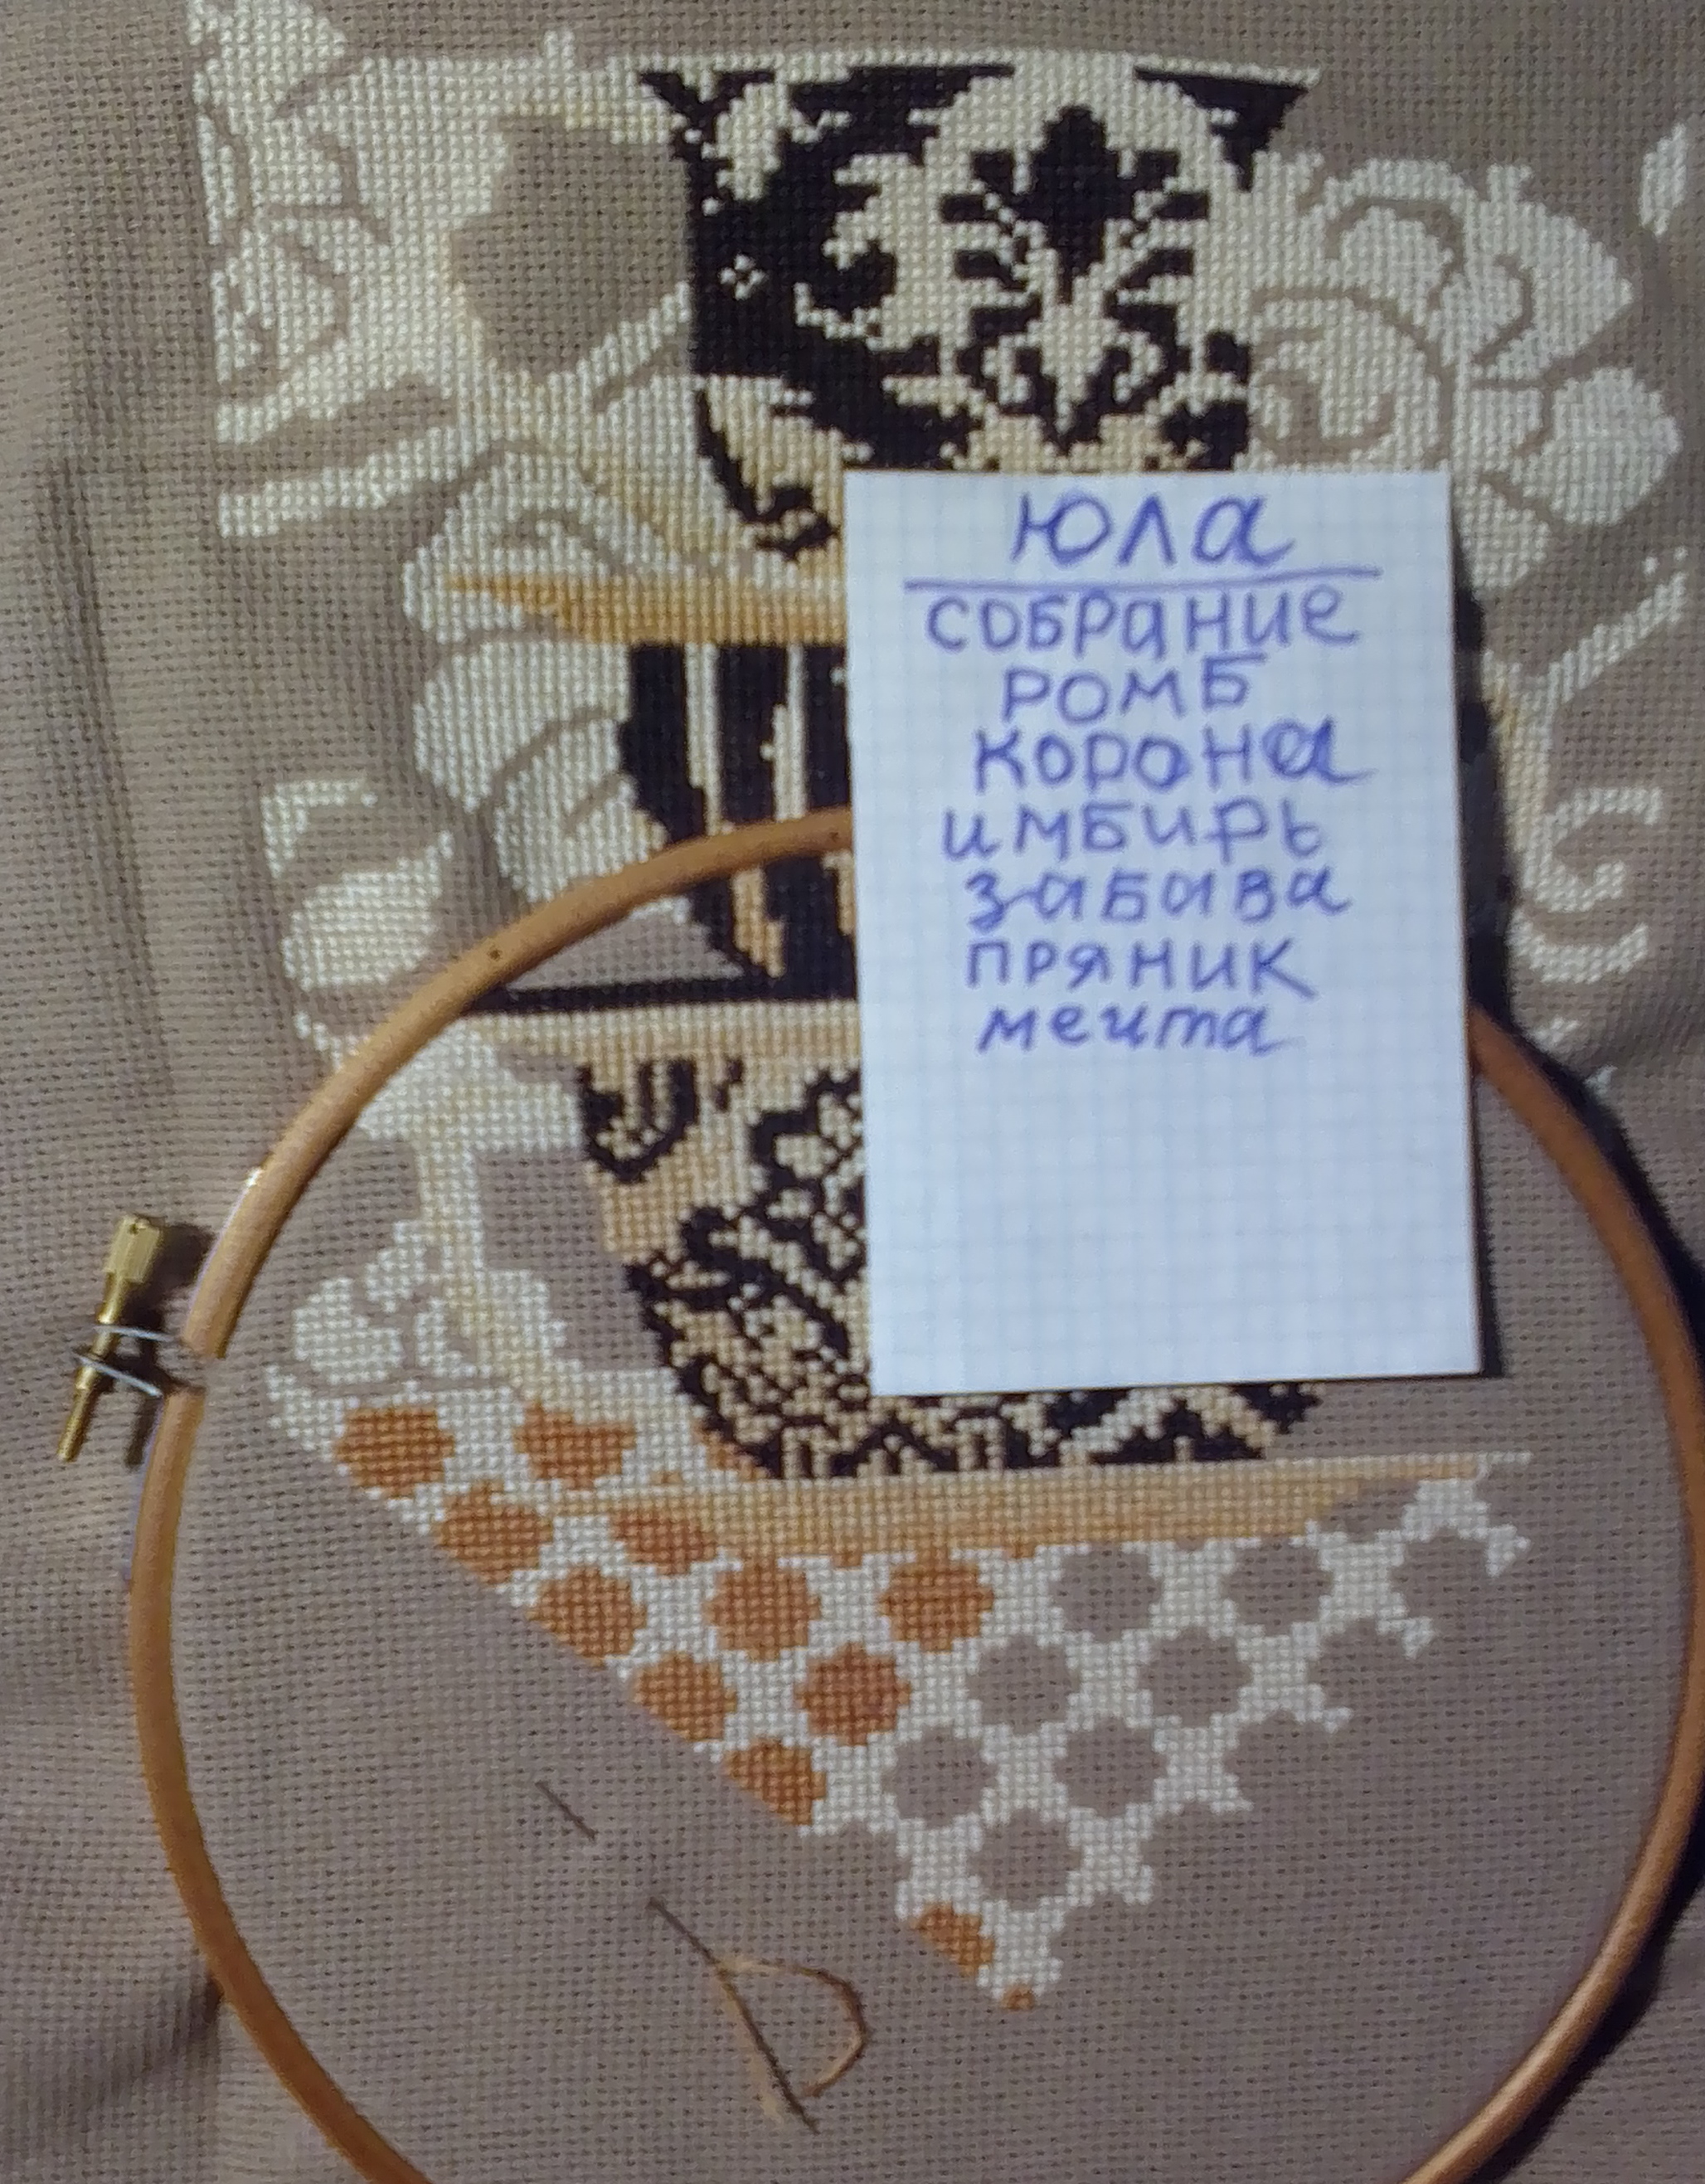 юла
собрание
ромб
корона
имбирь
забава
пряник
мечта